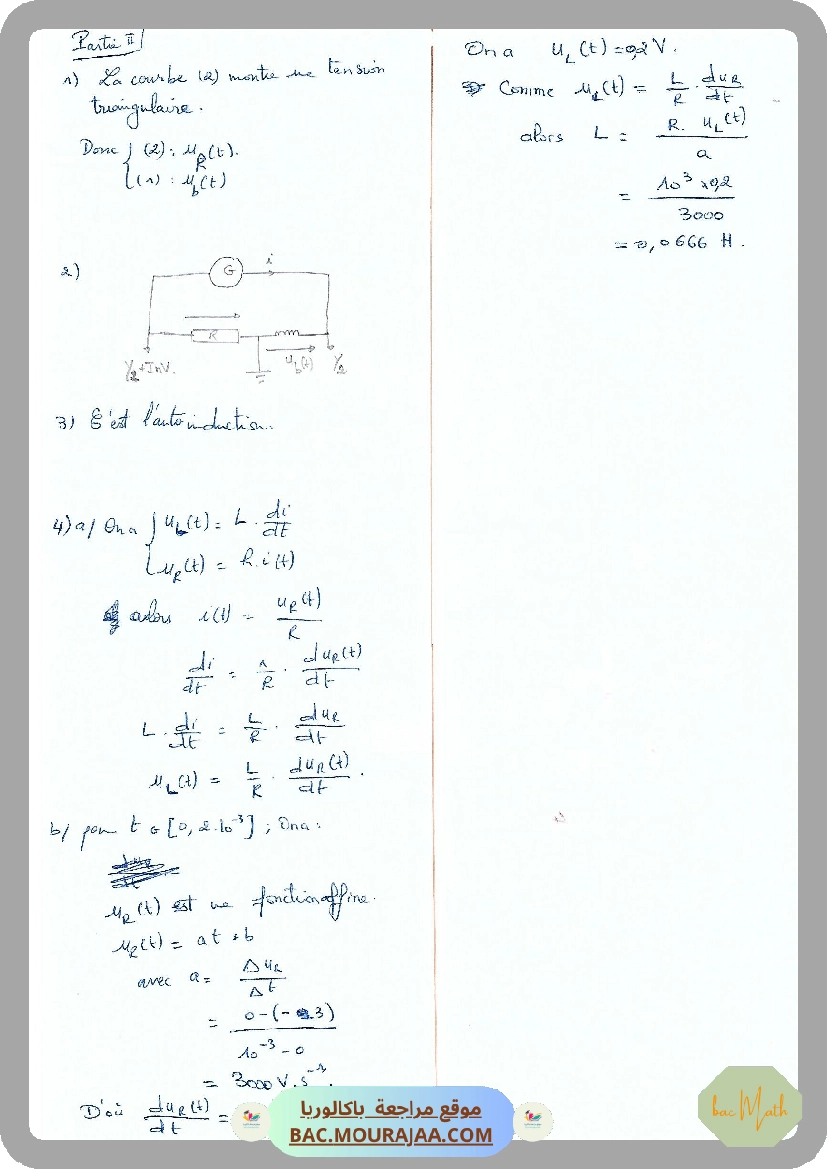 Partie II
1) La courbe (2) montre une tension
triangulaire.
Donc { (2) : u_R(t).
(1) : u_b(t)
2)
G
i
R
Y_2+INV.
u_b(t)
Y_2
3) C'est l'auto induction.
4) a/ On a { u_b(t) = L . di/dt
u_R(t) = R.i(t)
alors i(t) = u_R(t)/R
di/dt = 1/R . du_R(t)/dt
L . di/dt = L/R . du_R/dt
u_L(t) = L/R . du_R(t)/dt .
b/ pour t ∈ [0, 2.10^-3] ; On a :
u_R(t) est une fonction affine.
u_R(t) = at + b
avec a = Δu_R/Δt
= 0-(-3)/10^-3 - 0
= 3000 V.s^-1.
D'où du_R(t)/dt =
On a u_L(t) = 0,2 V.
Comme u_L(t) = L/R . du_R/dt
alors L = R. u_L(t)/a
= 10^3 x 0,2/3000
= 0,0666 H.
موقع مراجعة باكالوريا
BAC.MOURAJAA.COM
bac Math